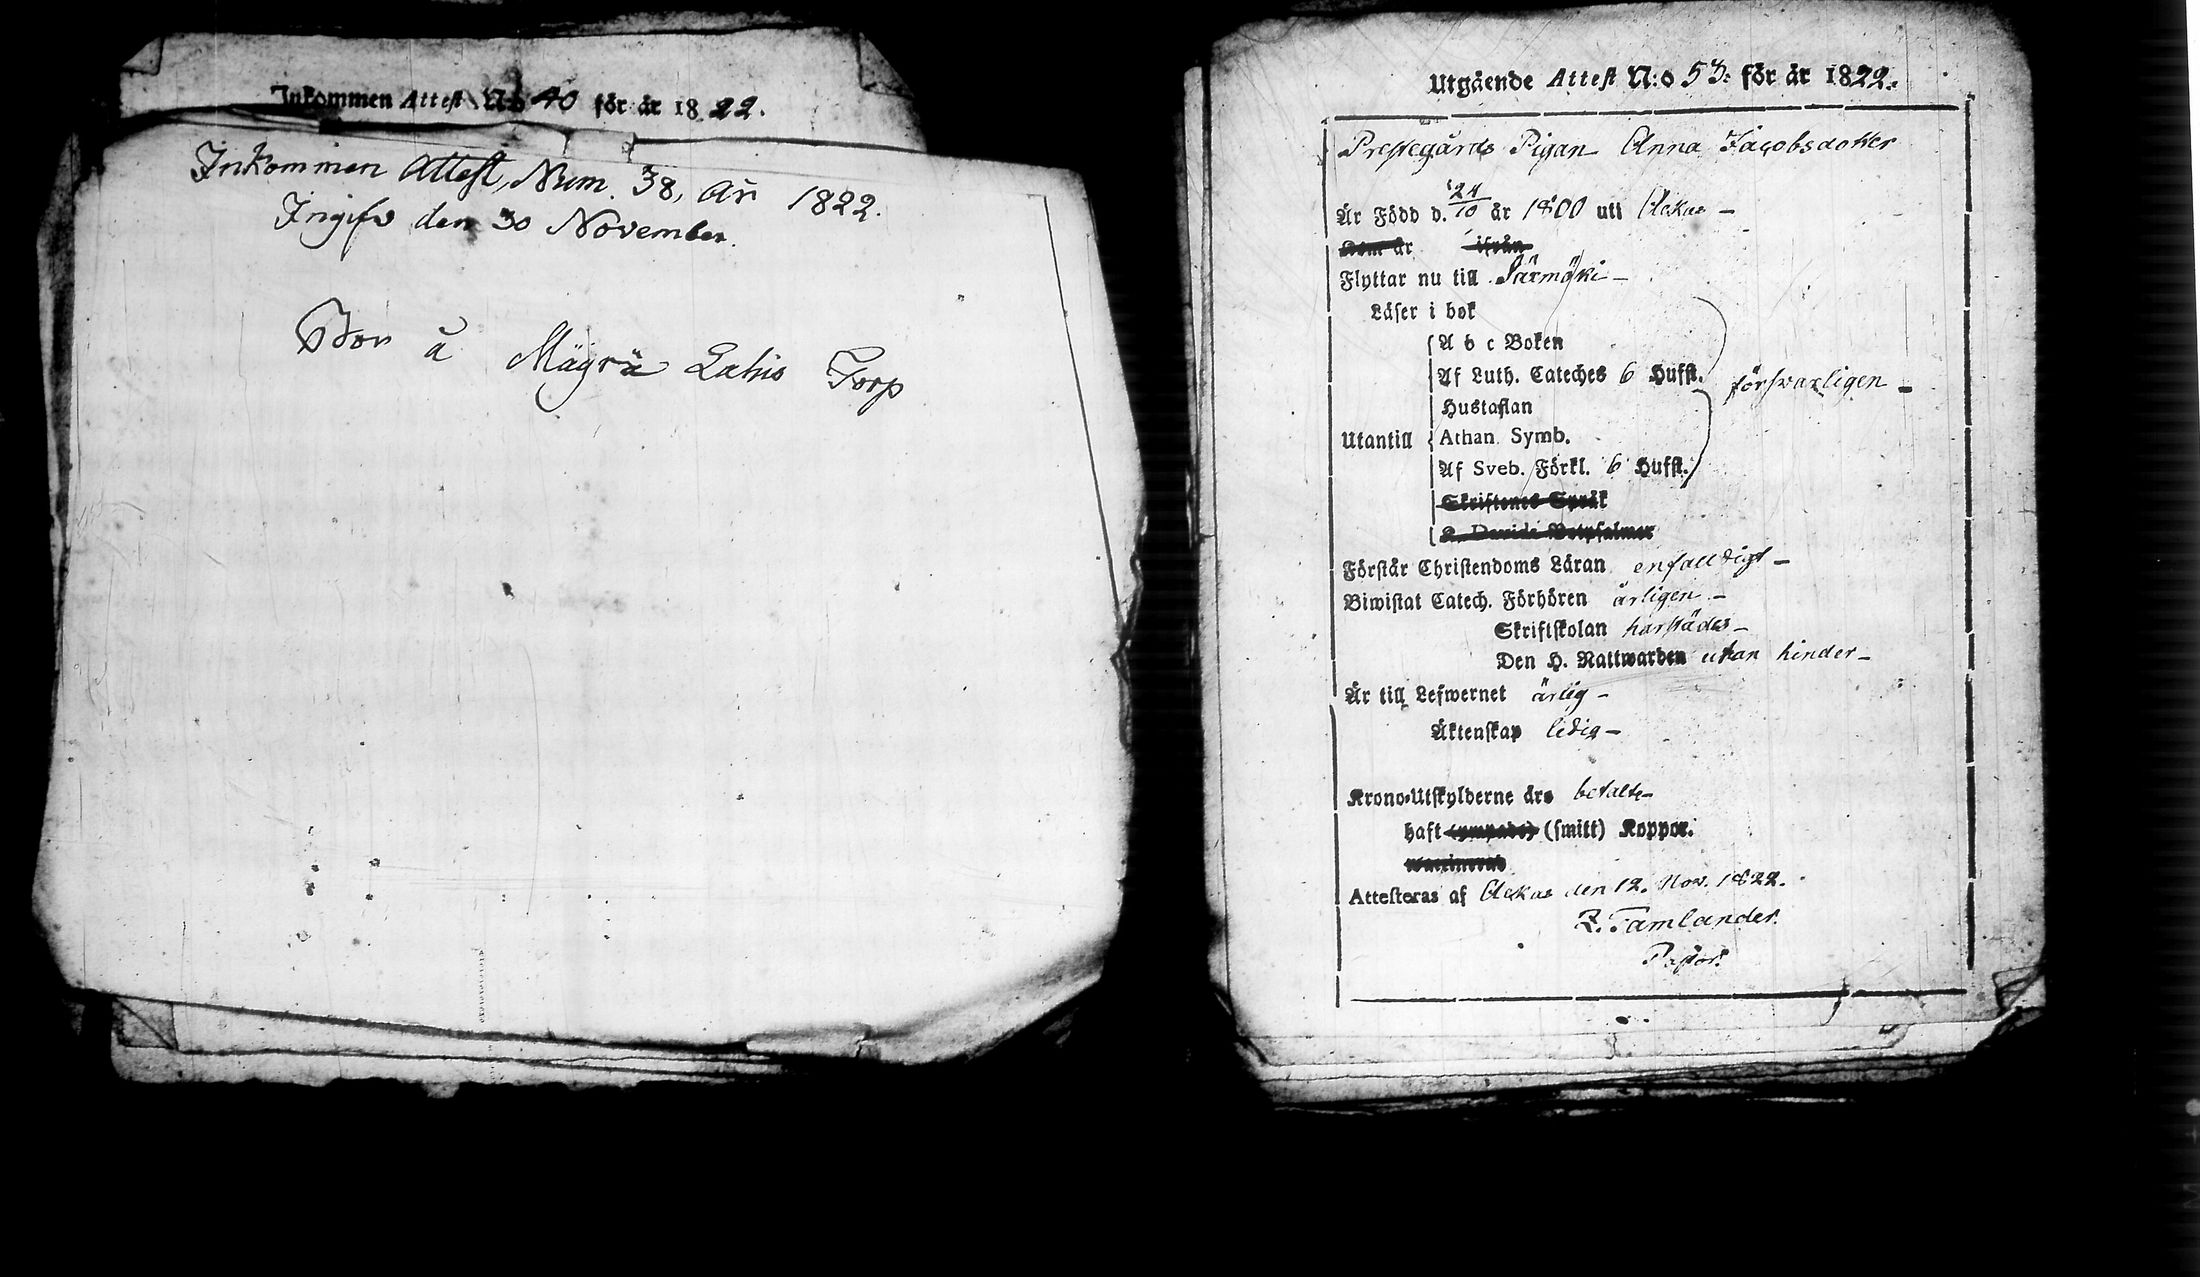 Inkommen Attest N:o 40 för år 1822.
Inkommen Attest, Num. 38, År 1822.
Ingifv den 30 November.
Bor å Mägrä Lahis Torp
Utgående Attest N:o 53: för år 1822.
Prestegårds Pigan Anna Jacobsdotter
Är Född d. 24/10 år 1800 uti Ackas –
Kom år ifrån
Flyttar nu till Särmäki –
Läser i bok
A b c Boken
Af Luth. Cateches 6 Hufst. försvarligen –
Hustaflan
Utantill Athan. Symb.
Af Sveb. Förkl. 6 Hufst.
Skriftenes Språk
K. Davids Botpsalmer
Förstår Christendoms Läran enfalldigt –
Biwistat Catech. Förhören årligen –
Skriftskolan härstädes –
Den H. Nattwarden utan hinder –
Är till Lefwernet ärlig –
Äktenskap ledig –
Krono-Utskylderne äro betalte –
haft (ympade) (smitt) Koppor.
waccinerad
Attesteras af Ackas den 12. Nov. 1822.
Z. Tamlander.
Pastor.